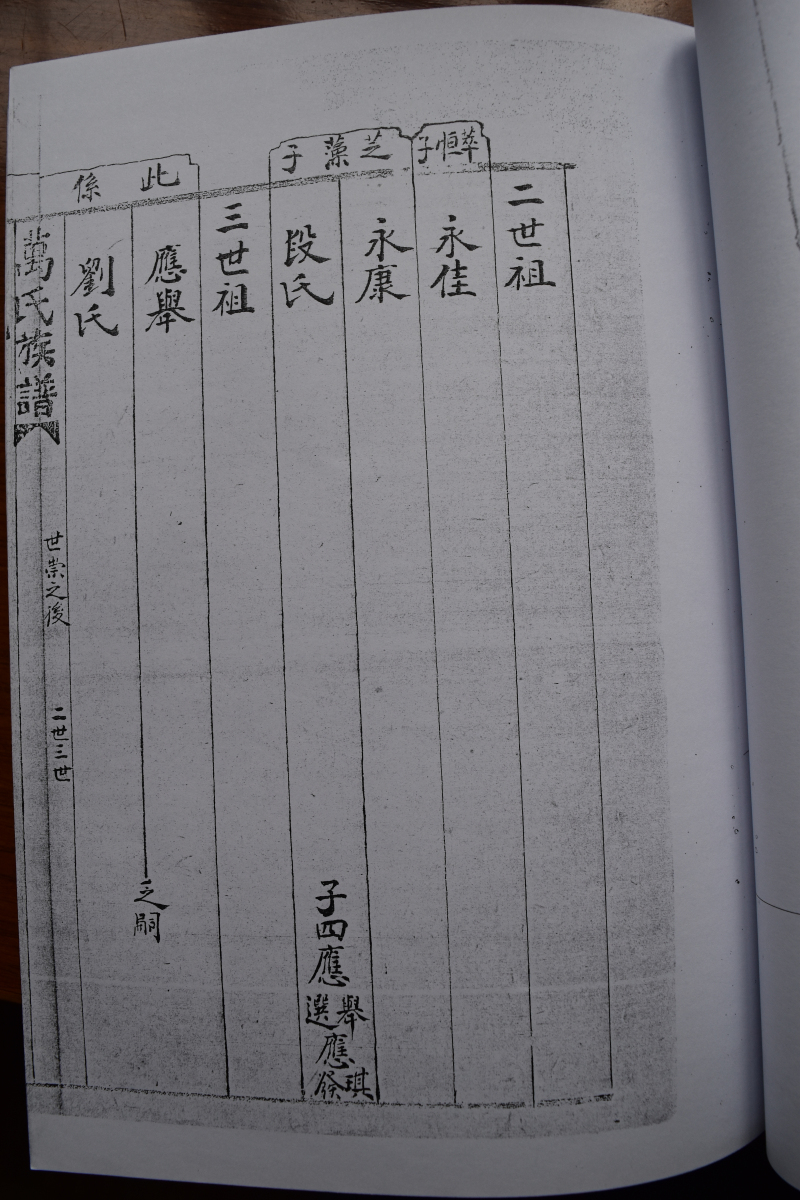 二世祖
恒子
永佳
芝藻子
永康
段氏
子四應舉選應琪發
三世祖
此係
應舉
之嗣
劉氏
萬氏族譜
世崇之後
二世三世